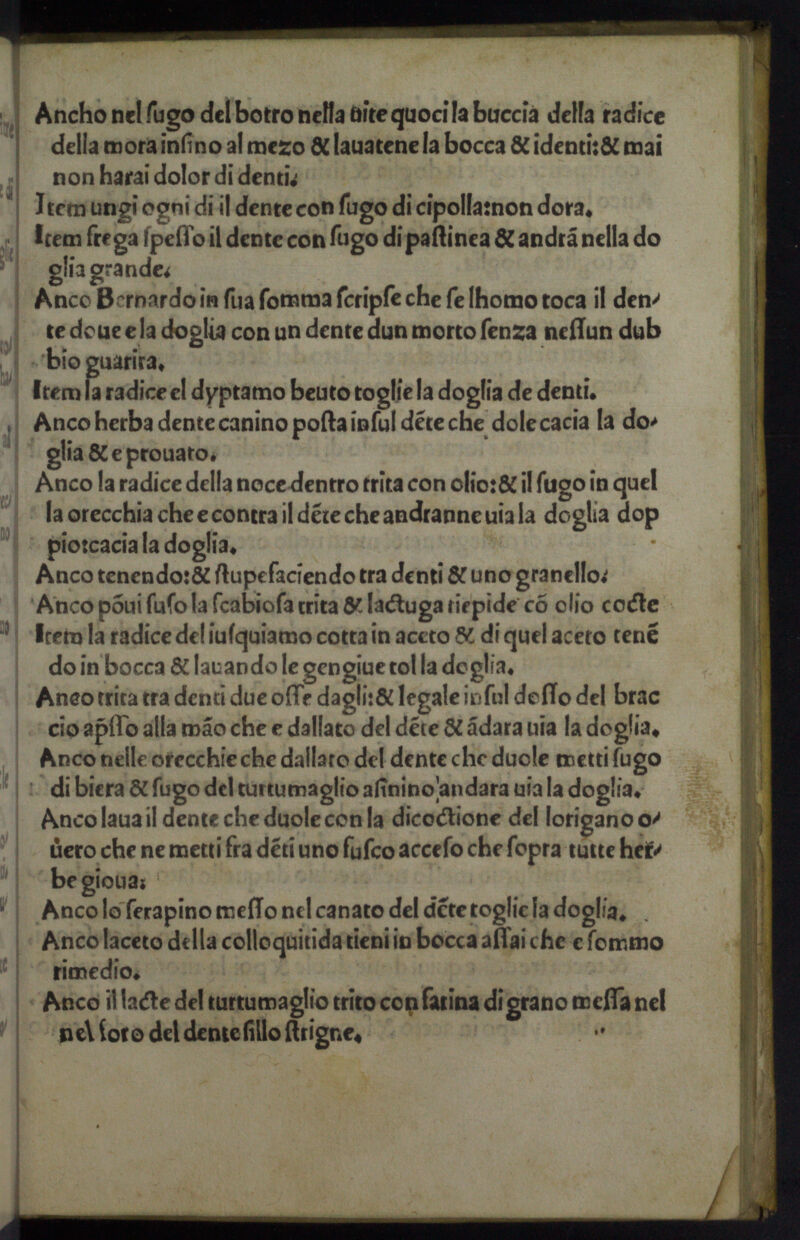 Ancho nel ſugo del botro nella uite quoci la buccia della radice
della mora inſino al mezo & lauatene la bocca & identi:& mai
non harai dolor di denti.
Item ungi ogni di il dente con ſugo di cipolla:non dora.
Item frega ſpeſſo il dente con ſugo di paſtinea & andrá nella do
glia grande.
Anco Bernardo in ſua ſomma ſcripſe che ſe lhomo toca il den/
te doue e la doglia con un dente dun morto ſenza neſſun dub
bio guarira.
Item la radice el dyptamo beuto toglie la doglia de denti.
Anco herba dente canino poſta inſul déte che dole cacia la do/
glia & e prouato.
Anco la radice della noce dentro trita con olio:& il ſugo in quel
la orecchia che e contra il déte che andranne uia la doglia dop
pio:cacia la doglia.
Anco tenendo:& ſtupefaciendo tra denti & uno granello.
Anco póui ſuſo la ſcabioſa trita & lactuga tiepide có olio cocte
Item la radice del iuſquiamo cotta in aceto & di quel aceto tené
do in bocca & lauando le gengiue tol la doglia.
Anco trita tra denti due oſſe dagli:& legale inſul doſſo del brac
cio apſſo alla máo che e dallato del déte & ádara uia la doglia.
Anco nelle orecchie che dallato del dente che duole metti ſugo
di biera & ſugo del turtumaglio aſinino andara uia la doglia.
Anco laua il dente che duole con la dicoctione del lorigano o/
uero che ne metti fra déti uno fuſco acceſo che ſopra tutte her/
be gioua;
Anco lo ſerapino meſſo nel canato del déte toglie la doglia.
Anco laceto della colloquitida tieni in bocca aſſai che e ſommo
rimedio.
Anco il lacte del turtumaglio trito con farina di grano meſſa nel
nel foro del dente ſillo ſtrigne.